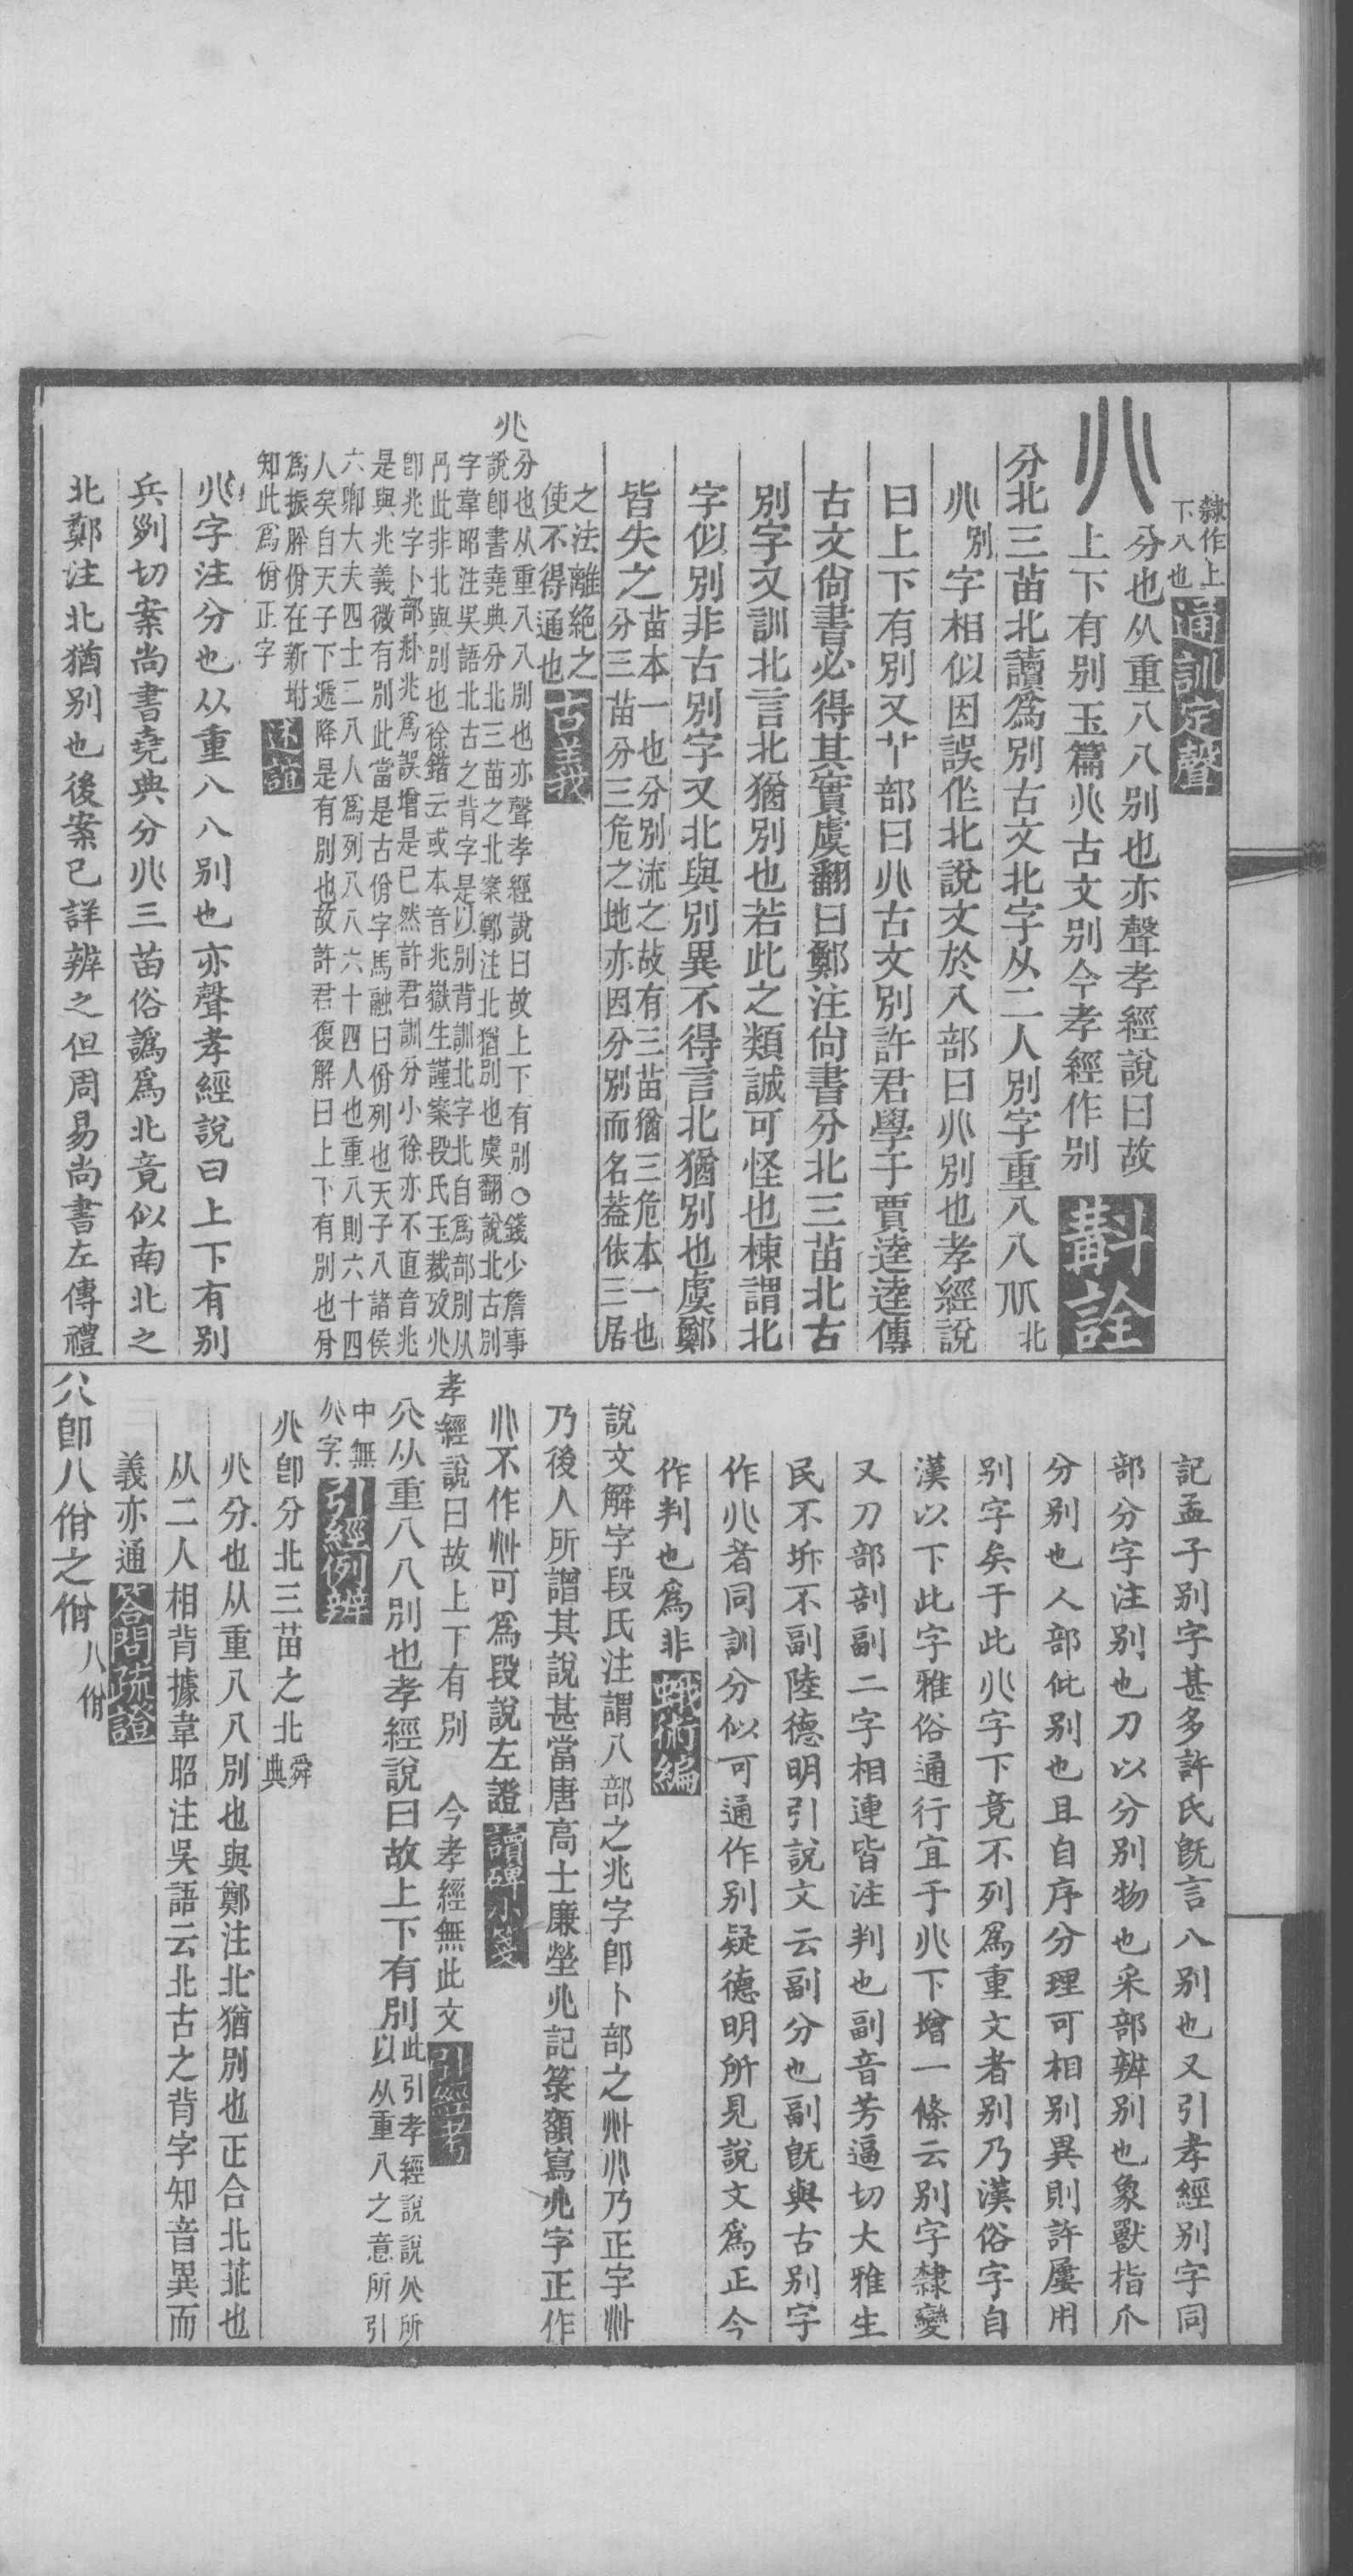 隸作上
下八也
通訓定聲
分也从重八八別也亦聲孝經說曰故
上下有別玉篇𠔁古文別今孝經作別
斠詮
分北三苗北讀爲別古文北字从二人別字重八八𠔁北
𠔁別字相似因誤作北說文於八部曰𠔁別也孝經說
曰上下有別又𠁥部曰𠔁古文別許君學于賈逵逵傳
古文尙書必得其實虞翻曰鄭注尙書分北三苗北古
別字又訓北言北猶別也若此之類誠可怪也棟謂北
字似別非古別字又北與別異不得言北猶別也虞鄭
皆失之
苗本一也分別流之故有三苗猶三危本一也
分三苗分三危之地亦因分別而名葢依三居
之法離絶之
使不得通也
古義
𠔁
分也从重八八別也亦聲孝經說曰故上下有別○錢少詹事
說卽書堯典分北三苗之北案鄭注北猶別也虞翻說北古別
字韋昭注吳語北古之背字是以別背訓北字北自爲部別从
冎此非北與別也徐鍇云或本音兆嶽生謹案段氏玉裁改𠔁
卽兆字卜部𠧞兆爲誤增是已然許君訓分小徐亦不直音兆
是與兆義微有別此當是古佾字馬融曰佾列也天子八諸侯
六卿大夫四士二八人爲列八八六十四人也重八則六十四
人矣自天子下遞降是有別也故許君復解曰上下有別也佾
爲振肸佾在新坿
知此爲佾正字
述誼
𠔁字注分也从重八八別也亦聲孝經說曰上下有別
兵列切案尚書堯典分𠔁三苗俗譌爲北竟似南北之
北鄭注北猶别也後案已詳辨之但周易尚書左傳禮
記孟子别字甚多許氏旣言八别也又引孝經别字同
部分字注别也刀以分别物也釆部辨别也象獸指爪
分别也人部仳别也且自序分理可相别異則許屢用
别字矣于此𠔁字下竟不列爲重文者别乃漢俗字自
漢以下此字雅俗通行宜于𠔁下增一條云别字隸變
又刀部剖副二字相連皆注判也副音芳逼切大雅生
民不坼不副陸德明引說文云副分也副旣與古别字
作𠔁者同訓分似可通作别疑德明所見說文爲正今
作判也爲非
蛾術編
說文解字段氏注謂八部之兆字卽卜部之𠧞𠔁乃正字𠧞
乃後人所譄其說甚當唐高士廉塋兆記篆額寫兆字正作
𠔁不作𠧞可爲段說左證
讀碑小箋
孝經說曰故上下有別　今孝經無此文
引經考
𠔁从重八八別也孝經說曰故上下有別
此引孝經說說𠔁所
以从重八之意所引
中無
𠔁字
引經例辨
𠔁卽分北三苗之北
舜
典
𠔁分也从重八八別也與鄭注北猶別也正合北菲也
从二人相背據韋昭注吳語云北古之背字知音異而
義亦通
答問疏證
𠔁卽八佾之佾
八佾